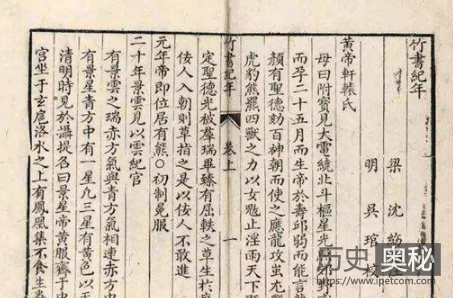 竹書紀年
梁 沈約
明 吳琯 校
黃帝軒轅氏
母曰附寶見大電繞北斗樞星光照郊
而孕二十五月而生帝於壽邱弱而能言
顏有聖德劾百神朝而使之應龍攻蚩尤
虎豹熊羆四獸之力以女魃止淫雨天下
竹書紀年 卷上 一
定聖德光被羣瑞畢臻有屈軼之草生於庭
佞人入朝則草指之是以佞人不敢進
元年帝即位居有熊○初制冕服
二十年景雲見以雲紀官
有景雲之瑞赤方氣與青方氣相連赤方中
有景星青方中有一星凡三星皆黃色以天
清明時見於攝提名曰景星帝黃服齋于中
宮坐于玄扈洛水之上有鳳凰集不食生蟲
历史奥秘
www.ipetcom.com